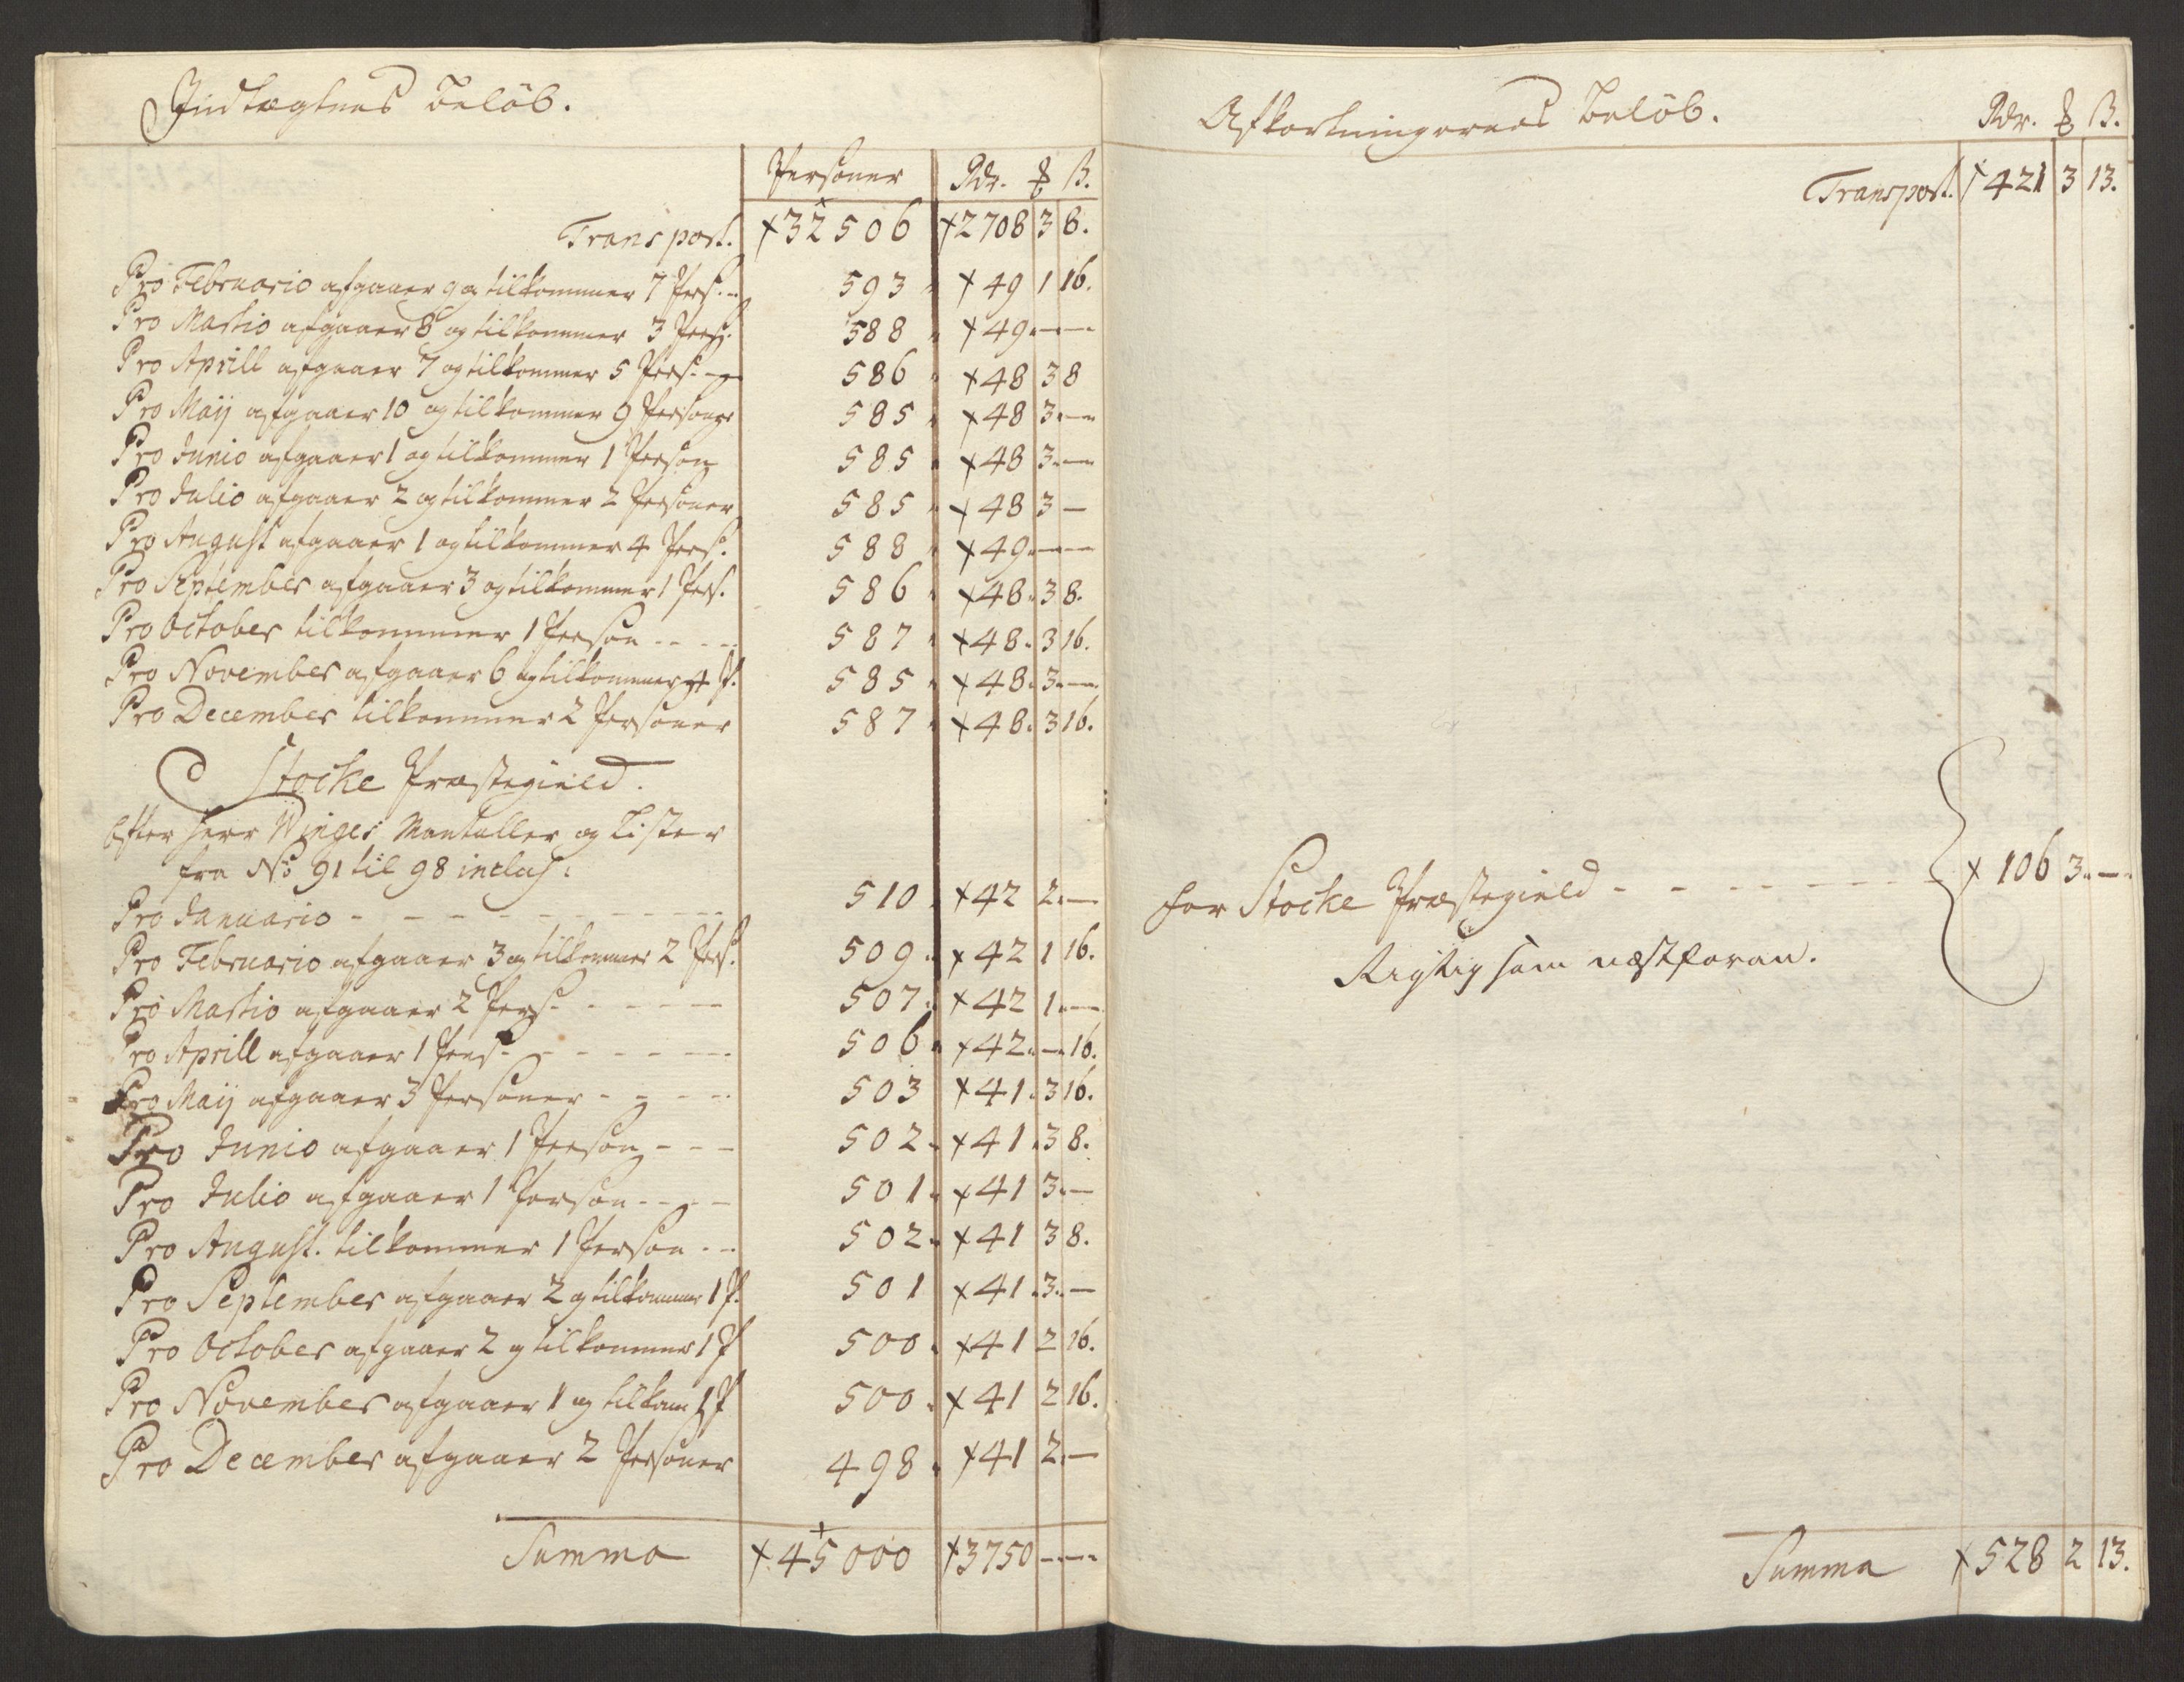 Indtægtnes Beløb.
Personer Rdr. ȣ ß.
Transport. 32506 2708 3 8.
Pro Februario afgaaer 9 og tilkommer 7 Pers. 593 49 1 16.
Pro Martio afgaaer 8 og tilkommer 3 Pers. 588 49 - -
Pro Aprill afgaaer 7 og tilkommer 5 Pers. 586 48 3 8
Pro Maij afgaaer 10 og tilkommer 9 Personer 585 48 3 -
Pro Junio afgaaer 1 og tilkommer 1 Person 585 48 3 -
Pro Julio afgaaer 2 og tilkommer 2 Personer 585 48 3 -
Pro August afgaaer 1 og tilkommer 4 Pers. 588 49 - -
Pro September afgaaer 3 og tilkommer 1 Pers. 586 48 3 8.
Pro October tilkommer 1 Person 587 48 3 16.
Pro November afgaaer 6 og tilkommer 4 P. 585 48 3 -
Pro December tilkommer 2 Personer 587 48 3 16.
Stocke Præstegield.
Efter Herr Winges Mantaller og Lister
fra No 91 til 98 inclus:
Pro Januario 510 42 2 -
Pro Februario afgaaer 3 og tilkommer 2 Pers. 509 42 1 16.
Pro Martio afgaaer 2 Pers. 507 42 1 -
Pro Aprill afgaaer 1 Pers. 506 42 - 16.
Pro Maij afgaaer 3 Personer 503 41 3 16.
Pro Junio afgaaer 1 Person 502 41 3 8.
Pro Julio afgaaer 1 Person 501 41 3 -
Pro August. tilkommer 1 Person 502 41 3 8.
Pro September afgaaer 2 og tilkommer 1 P. 501 41 3 -
Pro October afgaaer 2 og tilkommer 1 P 500 41 2 16.
Pro November afgaaer 1 og tilkom 1 P 500 41 2 16.
Pro December afgaaer 2 Personer 498 41 2 -
Summa 45000 3750 - -
Afkortningernes Beløb. Rdr. ȣ ß.
Transport. 421 3 13.
for Stocke Præstegield 106 3 -
Rigtig som næstforan.
Summa 528 2 13.